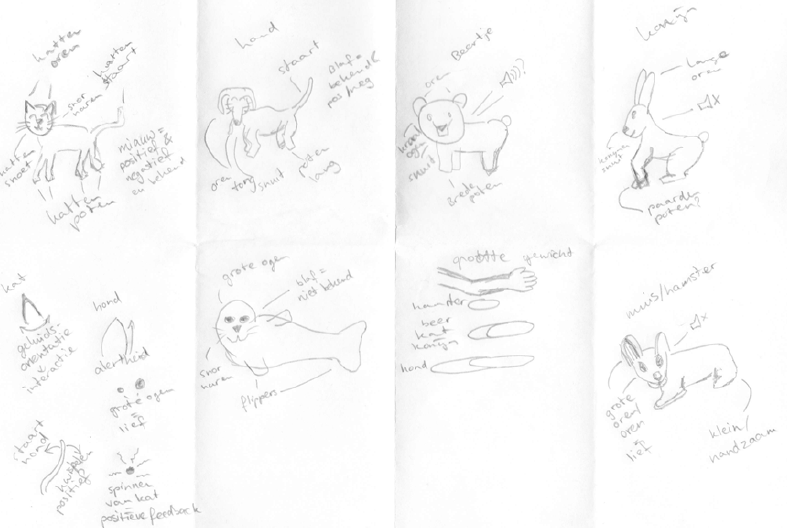 katten
oren
katten
staart
snor
haren
katten
snoet
katten
poten
miauw =
positief &
negatief
en bekend
hond
staart
blaf =
bekend &
pos/neg
oren
tong
snuit
poten
lang
Beertje
oren
ogen
snuit
brede
poten
konijn
lange
oren
konijnen
snuit
paarden
poten?
kat
geluids-
orientatie
&
interactie
hond
alertheid
grote ogen
=
lief
staart
hond
kwispelen
positief
spinnen
van kat
=
positieve feedback
grote ogen
blaf =
niet bekend
snor
haren
flippers
grootte
gewicht
hamster
beer
kat
konijn
hond
muis/hamster
grote
oren/
oren
=
lief
klein/
handzaam